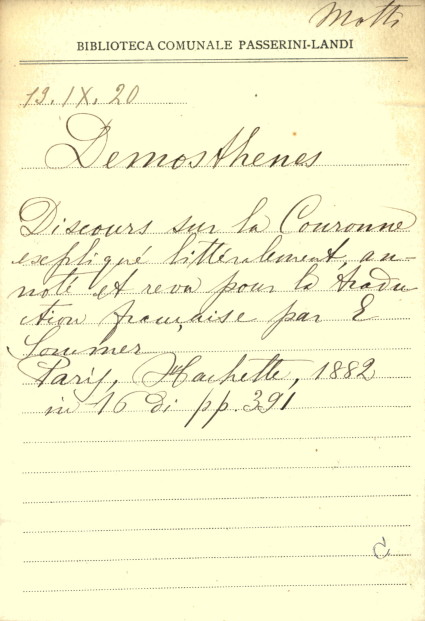 Motti
BIBLIOTECA COMUNALE PASSERINI-LANDI
13.IX.20
Demosthenes
Discours sur la Couronne
expliqué littéralement, an-
noté et revu pour la tradu
ction française par E
Sommer
Paris, Hachette, 1882
in 16 di pp. 391
C